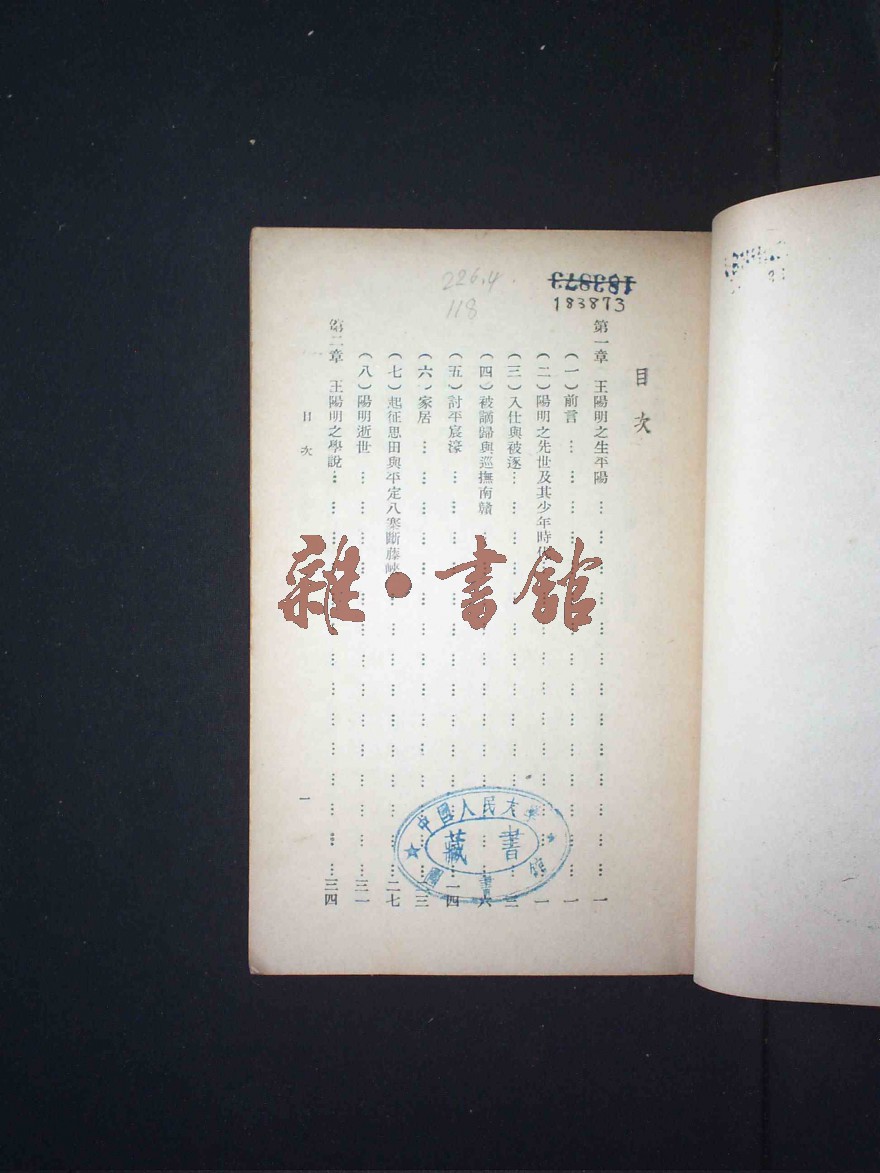 226.4
118
183873
183873
目次
第一章 王陽明之生平陽……一
(一)前言……一
(二)陽明之先世及其少年時代……一
(三)入仕與被逐……三
(四)被謫歸與巡撫南贛……六
(五)討平宸濠……一四
(六)家居……三
(七)起征思田與平定八寨斷藤峽……二七
(八)陽明逝世……三一
第二章 王陽明之學說……三四
目次
一
雜·書館
中國人民大學
藏書
圖書館